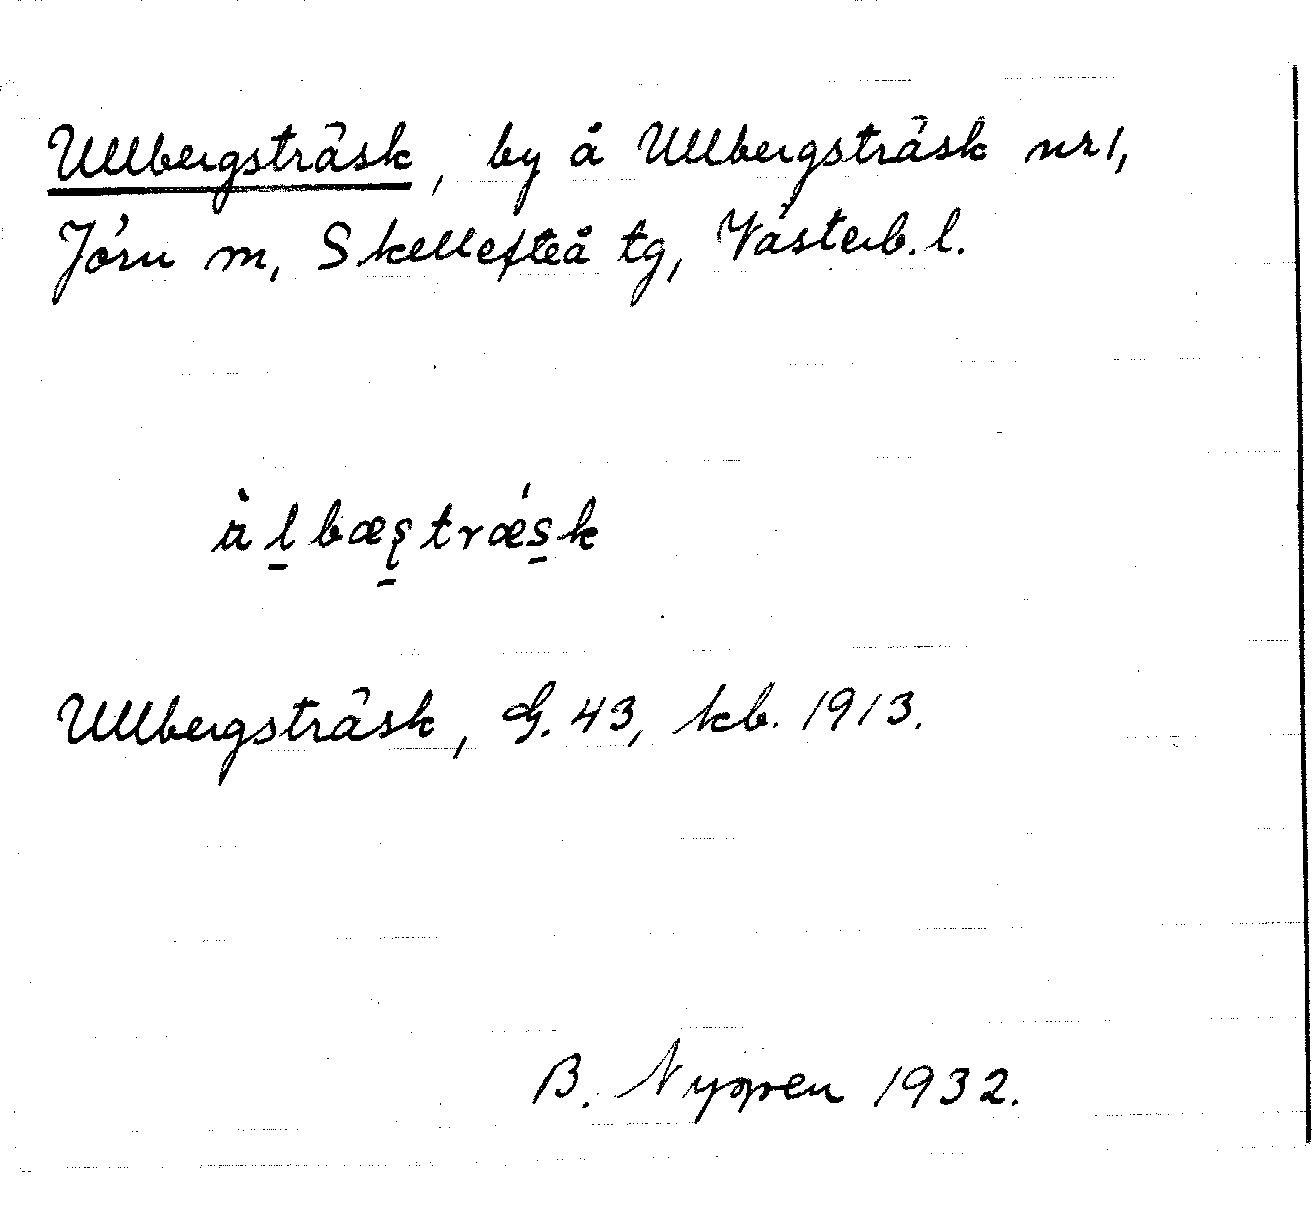 Ullbergsträsk, by å Ullbergsträsk nr 1,
Jörn sn, Skellefteå tg, Västerb. l.
Ullbergsträsk, G. 43, kb. 1913.
B. 1932.